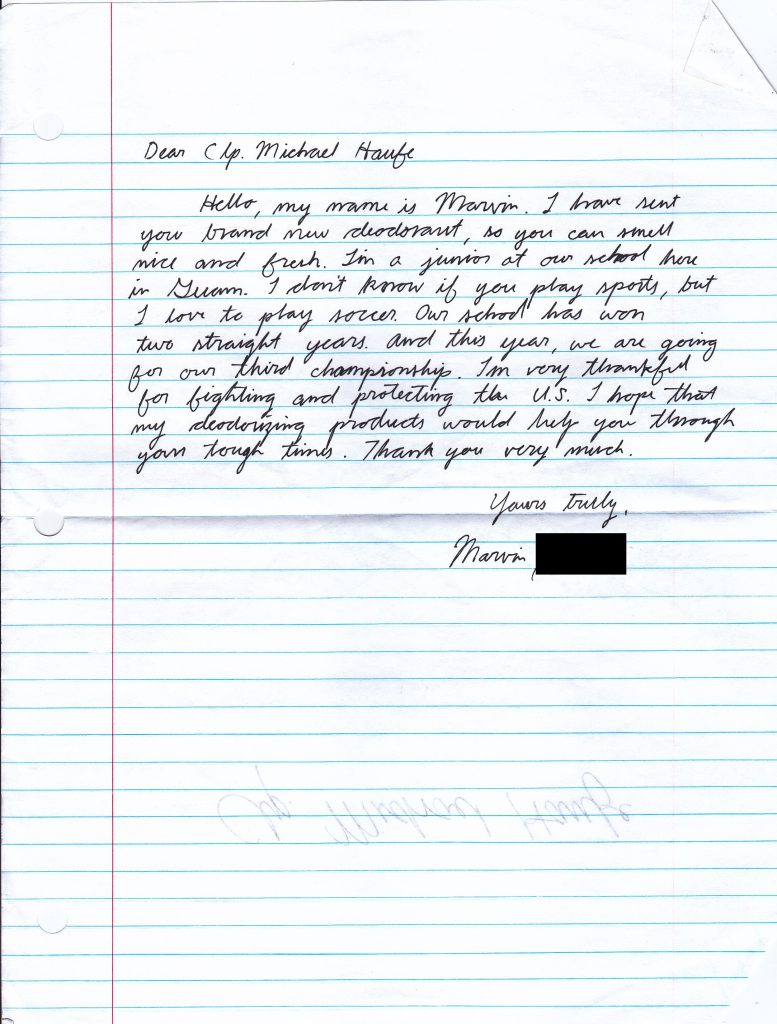 Dear Clp. Michael Haufe
Hello, my name is Marvin. I have sent
you brand new deodorant, so you can smell
nice and fresh. I'm a junior at our school here
in Guam. I don't know if you play sports, but
I love to play soccer. Our school has won
two straight years. And this year, we are going
for our third championship. I'm very thankful
for fighting and protecting the U.S. I hope that
my deodorizing products would help you through
your tough times. Thank you very much.
Yours trully,
Marvin
Clp. Michael Haufe